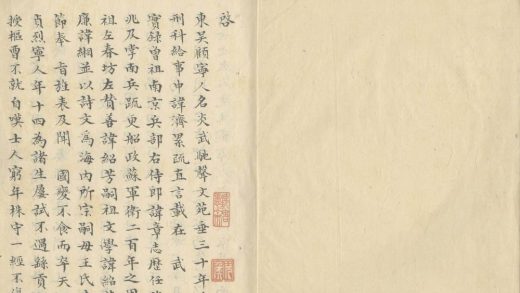 啓
東吳顧寧人名炎武馳聲文苑垂三十年
刑科給事中諱濟累疏直言載在 武
實録曾祖南京兵部右侍郎諱章志歷任
兆及掌南兵疏更船政蘇軍衛二百年之
祖左春坊左賛善諱紹芳嗣祖文學諱紹
廉諱綱並以詩文為海内所宗嗣母王氏
節奉 旨旌表及聞 國變不食而卒天
貞烈寧人年十四為諸生屢試不遇繇貢
授樞曹不就自嘆士人窮年株守一經不